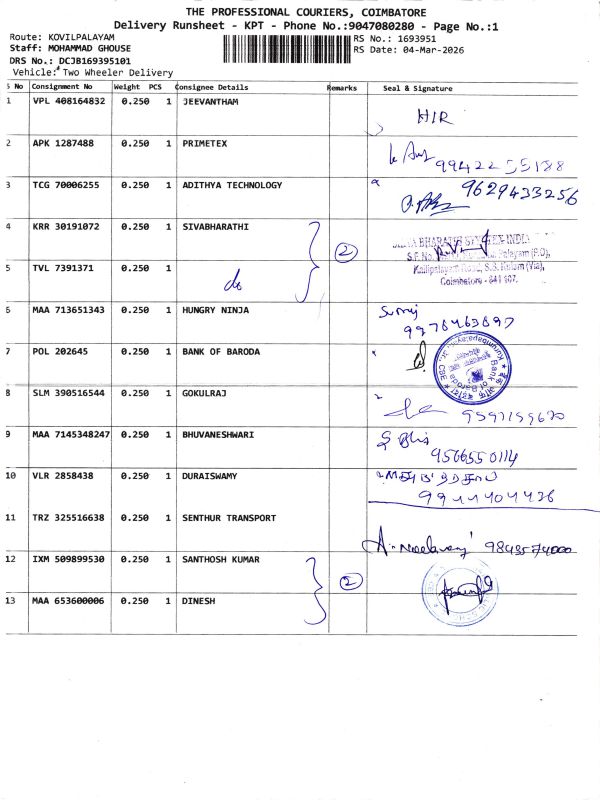 THE PROFESSIONAL COURIERS, COIMBATORE
Delivery Runsheet - KPT - Phone No.:9047080280 - Page No.:1
Route: KOVILPALAYAM
RS No.: 1693951
Staff: MOHAMMAD GHOUSE
RS Date: 04-Mar-2026
DRS No.: DCJB169395101
Vehicle: Two Wheeler Delivery
S No Consignment No Weight PCS Consignee Details Remarks Seal & Signature
1 VPL 408164832 0.250 1 JEEVANTHAM HIR
2 APK 1287488 0.250 1 PRIMETEX 9942255188
3 TCG 70006255 0.250 1 ADITHYA TECHNOLOGY 9629433256
4 KRR 30191072 0.250 1 SIVABHARATHI 2
5 TVL 7391371 0.250 1 do
Coimbatore - 641 107.
6 MAA 713651343 0.250 1 HUNGRY NINJA
7 POL 202645 0.250 1 BANK OF BARODA Bank of Baroda
8 SLM 390516544 0.250 1 GOKULRAJ
9 MAA 7145348247 0.250 1 BHUVANESHWARI 9566550114
10 VLR 2858438 0.250 1 DURAISWAMY
11 TRZ 325516638 0.250 1 SENTHUR TRANSPORT
12 IXM 509899530 0.250 1 SANTHOSH KUMAR 2
13 MAA 653600006 0.250 1 DINESH